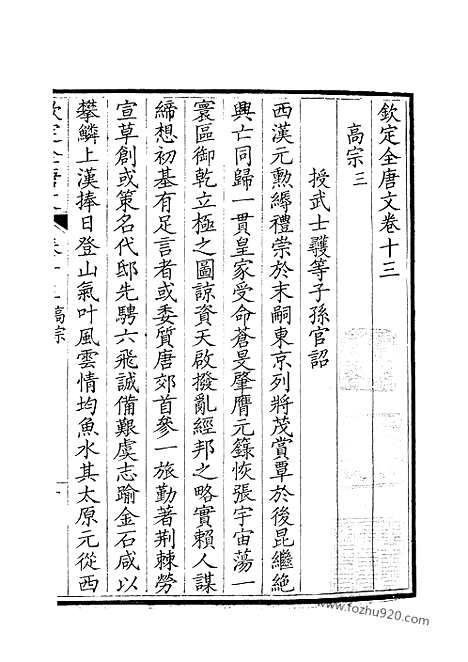 欽定全唐文卷十三
高宗三
授武士彠等子孫官詔
西漢元勲縟禮崇於末嗣東京列將茂賞覃於後昆繼絶
興亡同歸一貫皇家受命蒼旻肇膺元籙恢張宇宙蕩一
寰區御乾立極之圖諒資天啟撥亂經邦之略實賴人謀
締想初基有足言者或委質唐郊首參一旅勤著荆棘勞
宣草創或策名代邸先騁六飛誠備艱虞志踰金石咸以
攀鱗上漢捧日登山氣叶風雲情均魚水其太原元從西
欽定全唐文 卷十三 高宗 一
www.fozhu920.com